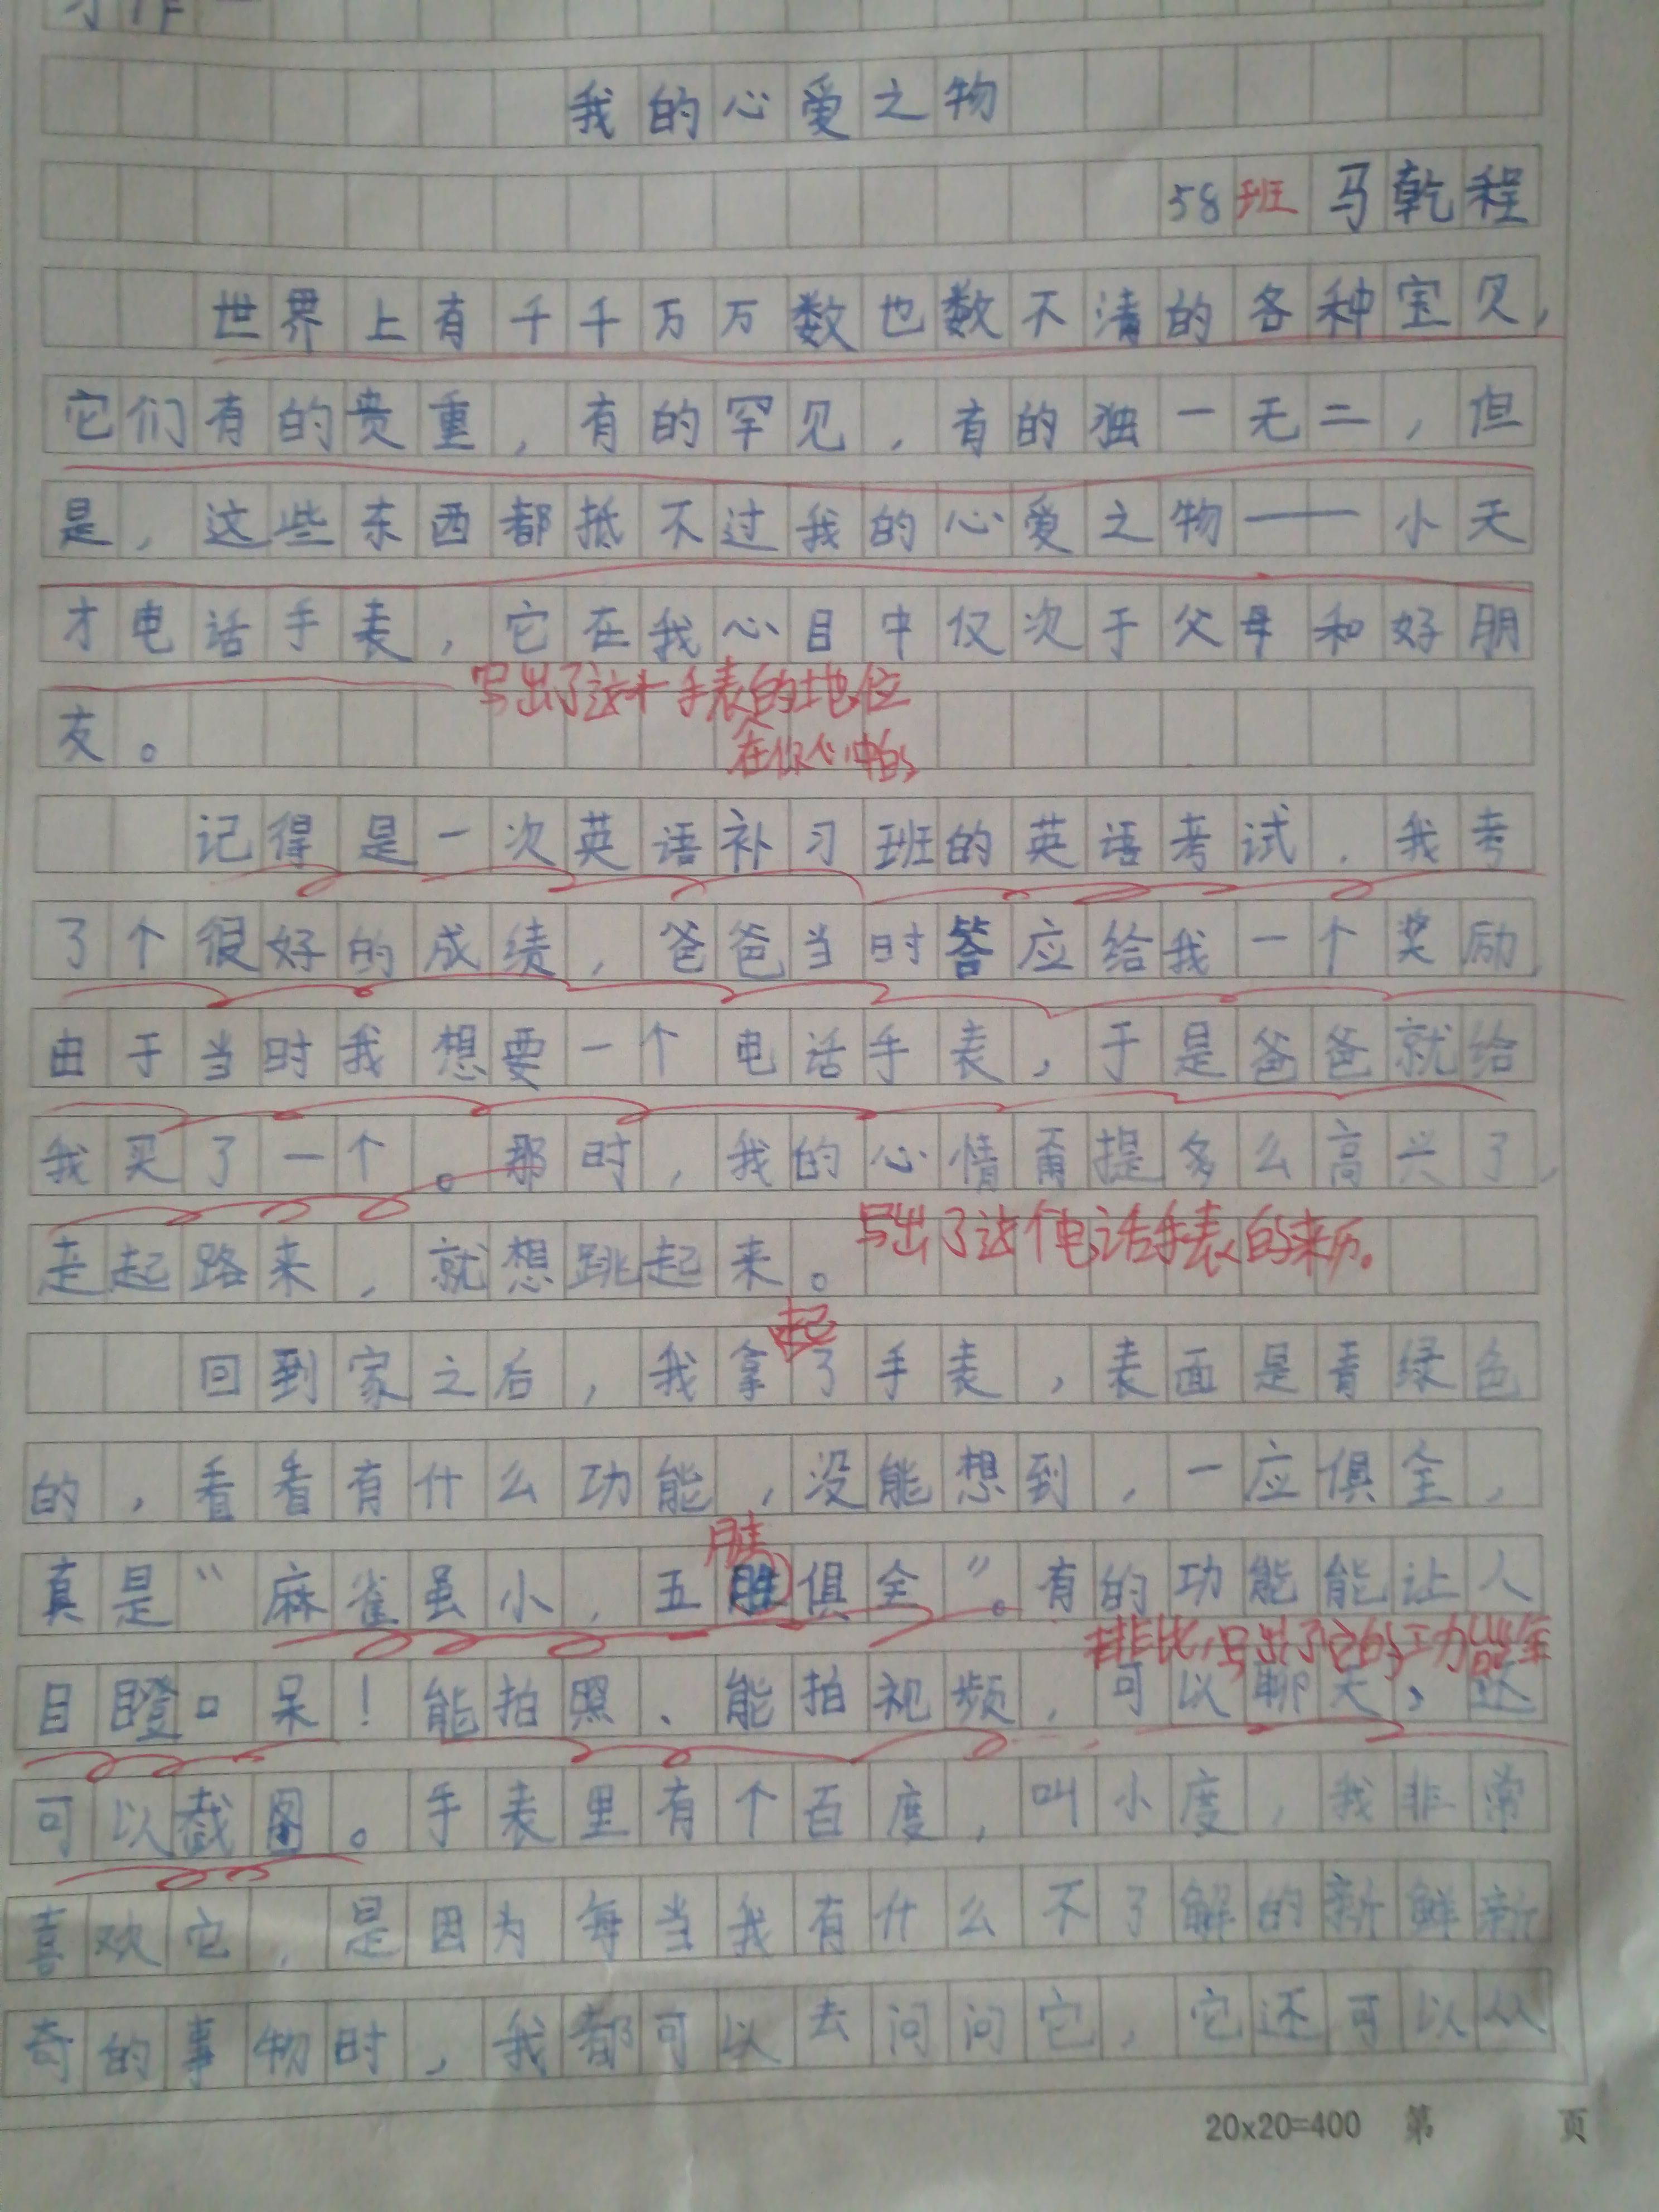 习作一
我的心爱之物
58班 马乾程
世界上有千千万万数也数不清的各种宝贝,
它们有的贵重,有的罕见,有的独一无二,但
是,这些东西都抵不过我的心爱之物——小天
才电话手表,它在我心目中仅次于父母和好朋
写出了这个手表的地位
友。
在你心中的
记得是一次英语补习班的英语考试,我考
了个很好的成绩,爸爸当时答应给我一个奖励,
由于当时我想要一个电话手表,于是爸爸就给
我买了一个。那时,我的心情甭提多么高兴了,
走起路来,就想跳起来。
写出了这个电话手表的来历。
起
回到家之后,我拿了手表,表面是青绿色
的,看看有什么功能,没能想到,一应俱全,
脏
真是“麻雀虽小,五胜俱全”。有的功能能让人
排比,写出了它的功能全
目瞪口呆!能拍照、能拍视频,可以聊天,还
可以截图。手表里有个百度,叫小度,我非常
喜欢它,是因为每当我有什么不了解的新鲜新
奇的事物时,我都可以去问问它,它还可以从
20x20=400 第 页